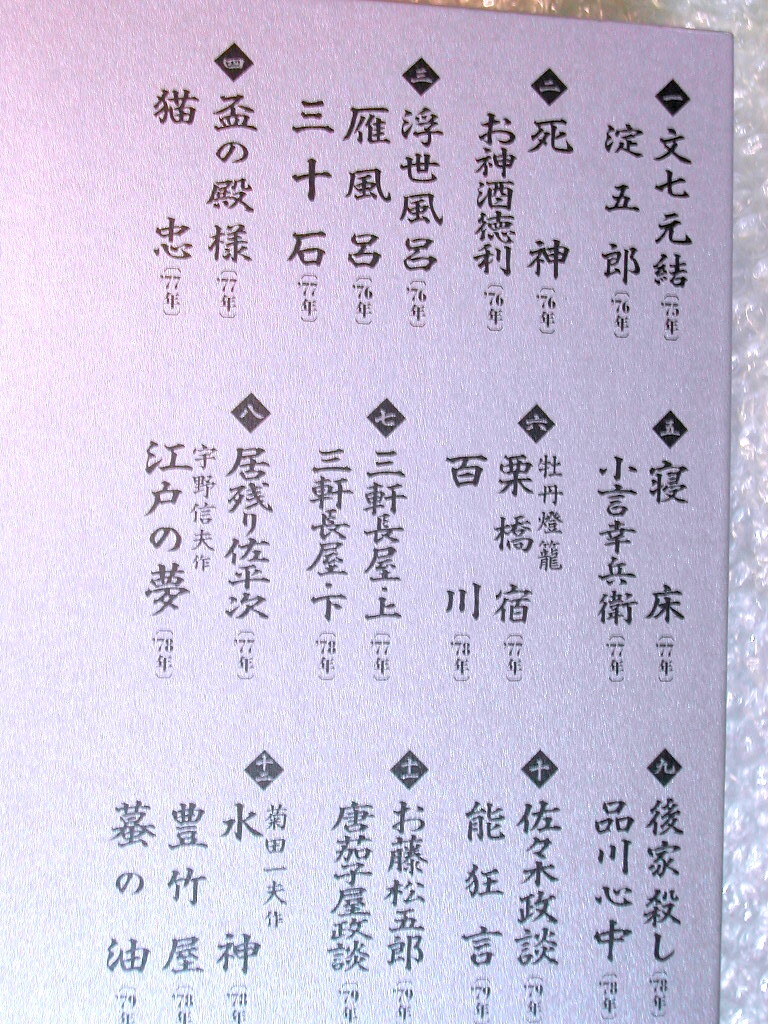 一
文七元結〔'75年〕
淀五郎〔'76年〕
二
死神〔'76年〕
お神酒徳利〔'76年〕
三
浮世風呂〔'76年〕
雁風呂〔'76年〕
三十石〔'77年〕
四
盃の殿様〔'77年〕
猫忠〔'77年〕
五
寝床〔'77年〕
小言幸兵衛〔'77年〕
六
牡丹燈籠
栗橋宿〔'77年〕
百川〔'78年〕
七
三軒長屋・上〔'77年〕
三軒長屋・下〔'78年〕
八
居残り佐平次〔'77年〕
宇野信夫作
江戸の夢〔'78年〕
九
後家殺し〔'78年〕
品川心中〔'78年〕
十
佐々木政談〔'79年〕
能狂言〔'79年〕
十一
お藤松五郎〔'79年〕
唐茄子屋政談〔'79年〕
十二
菊田一夫作
水神〔'78年
豊竹屋〔'78年
蟇の油〔'79年